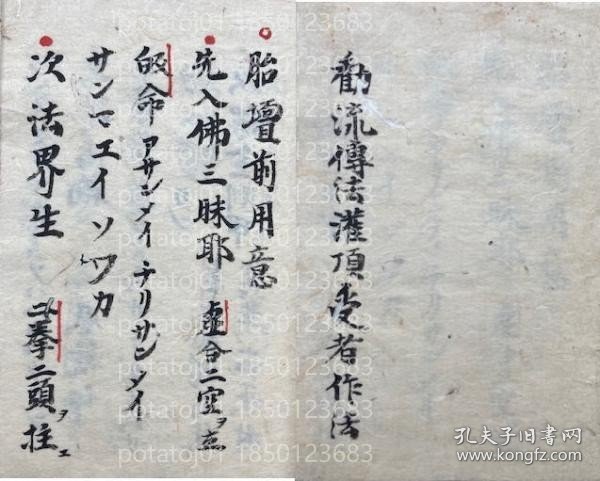 勸流傳法灌頂受者作法
胎壇前用意
先入佛三昧耶 虚合二空ヲ立
皈命 アサンメイ チリサンメイ
サンマエイ ソワカ
次法界生 二拳二頭ヲ柱エ
potatoj01 1850123683
孔夫子旧书网
www.kongfz.com